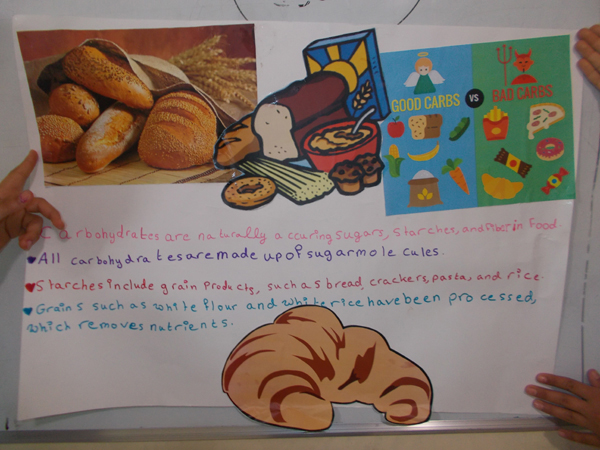 GOOD CARBS VS BAD CARBS
Carbohydrates are naturally accuring sugars, starches, and fiber in food.
All carbohydrates are made up of sugar mole cules.
Starches include grain products, such as bread, crackers, pasta, and rice.
Grains such as white flour and white rice have been processed,
which removes nutrients.